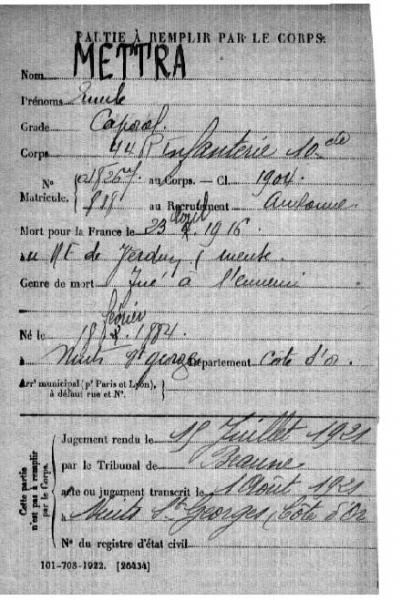 PARTIE À REMPLIR PAR LE CORPS.
Nom METTRA
Prénoms Emile
Grade Caporal
Corps 44 R Infanterie 10 cie
N° Matricule. 018267 au Corps. — Cl. 1904.
818 au Recrutement Auxonne
Mort pour la France le 23 avril 1916
à au NE de Verdun (meuse.
Genre de mort Tué à l'ennemi
Né le 18 février 1884.
à Nuits St georges Département Cote d'Or.
Arrt municipal (pr Paris et Lyon),
à défaut rue et N°.
Cette partie
n'est pas à remplir
par le Corps.
Jugement rendu le 15 Juillet 1921
par le Tribunal de Beaune
acte ou jugement transcrit le 1 Août 1921
à Nuits St Georges (Côte d'Or
N° du registre d'état civil
101-708-1922. [26434]